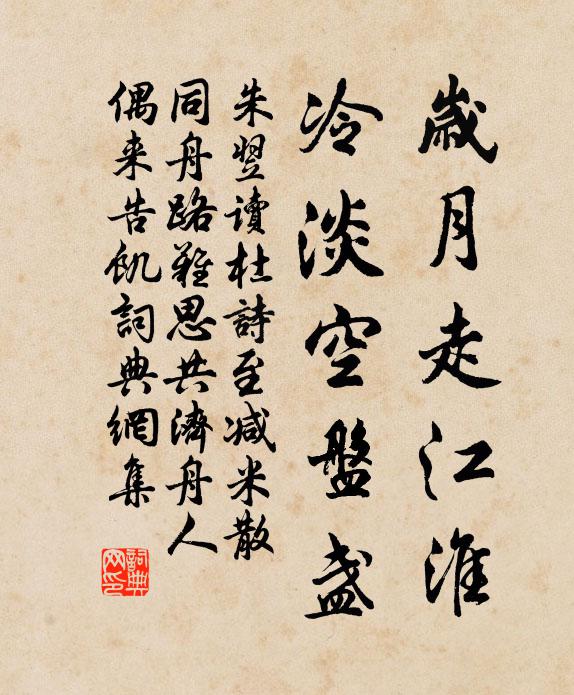 歲月走江淮
冷淡空盤盞
朱翌讀杜詩至减米散
同舟路難思共濟舟人
偶来告飢詞典網集
詞典
网印